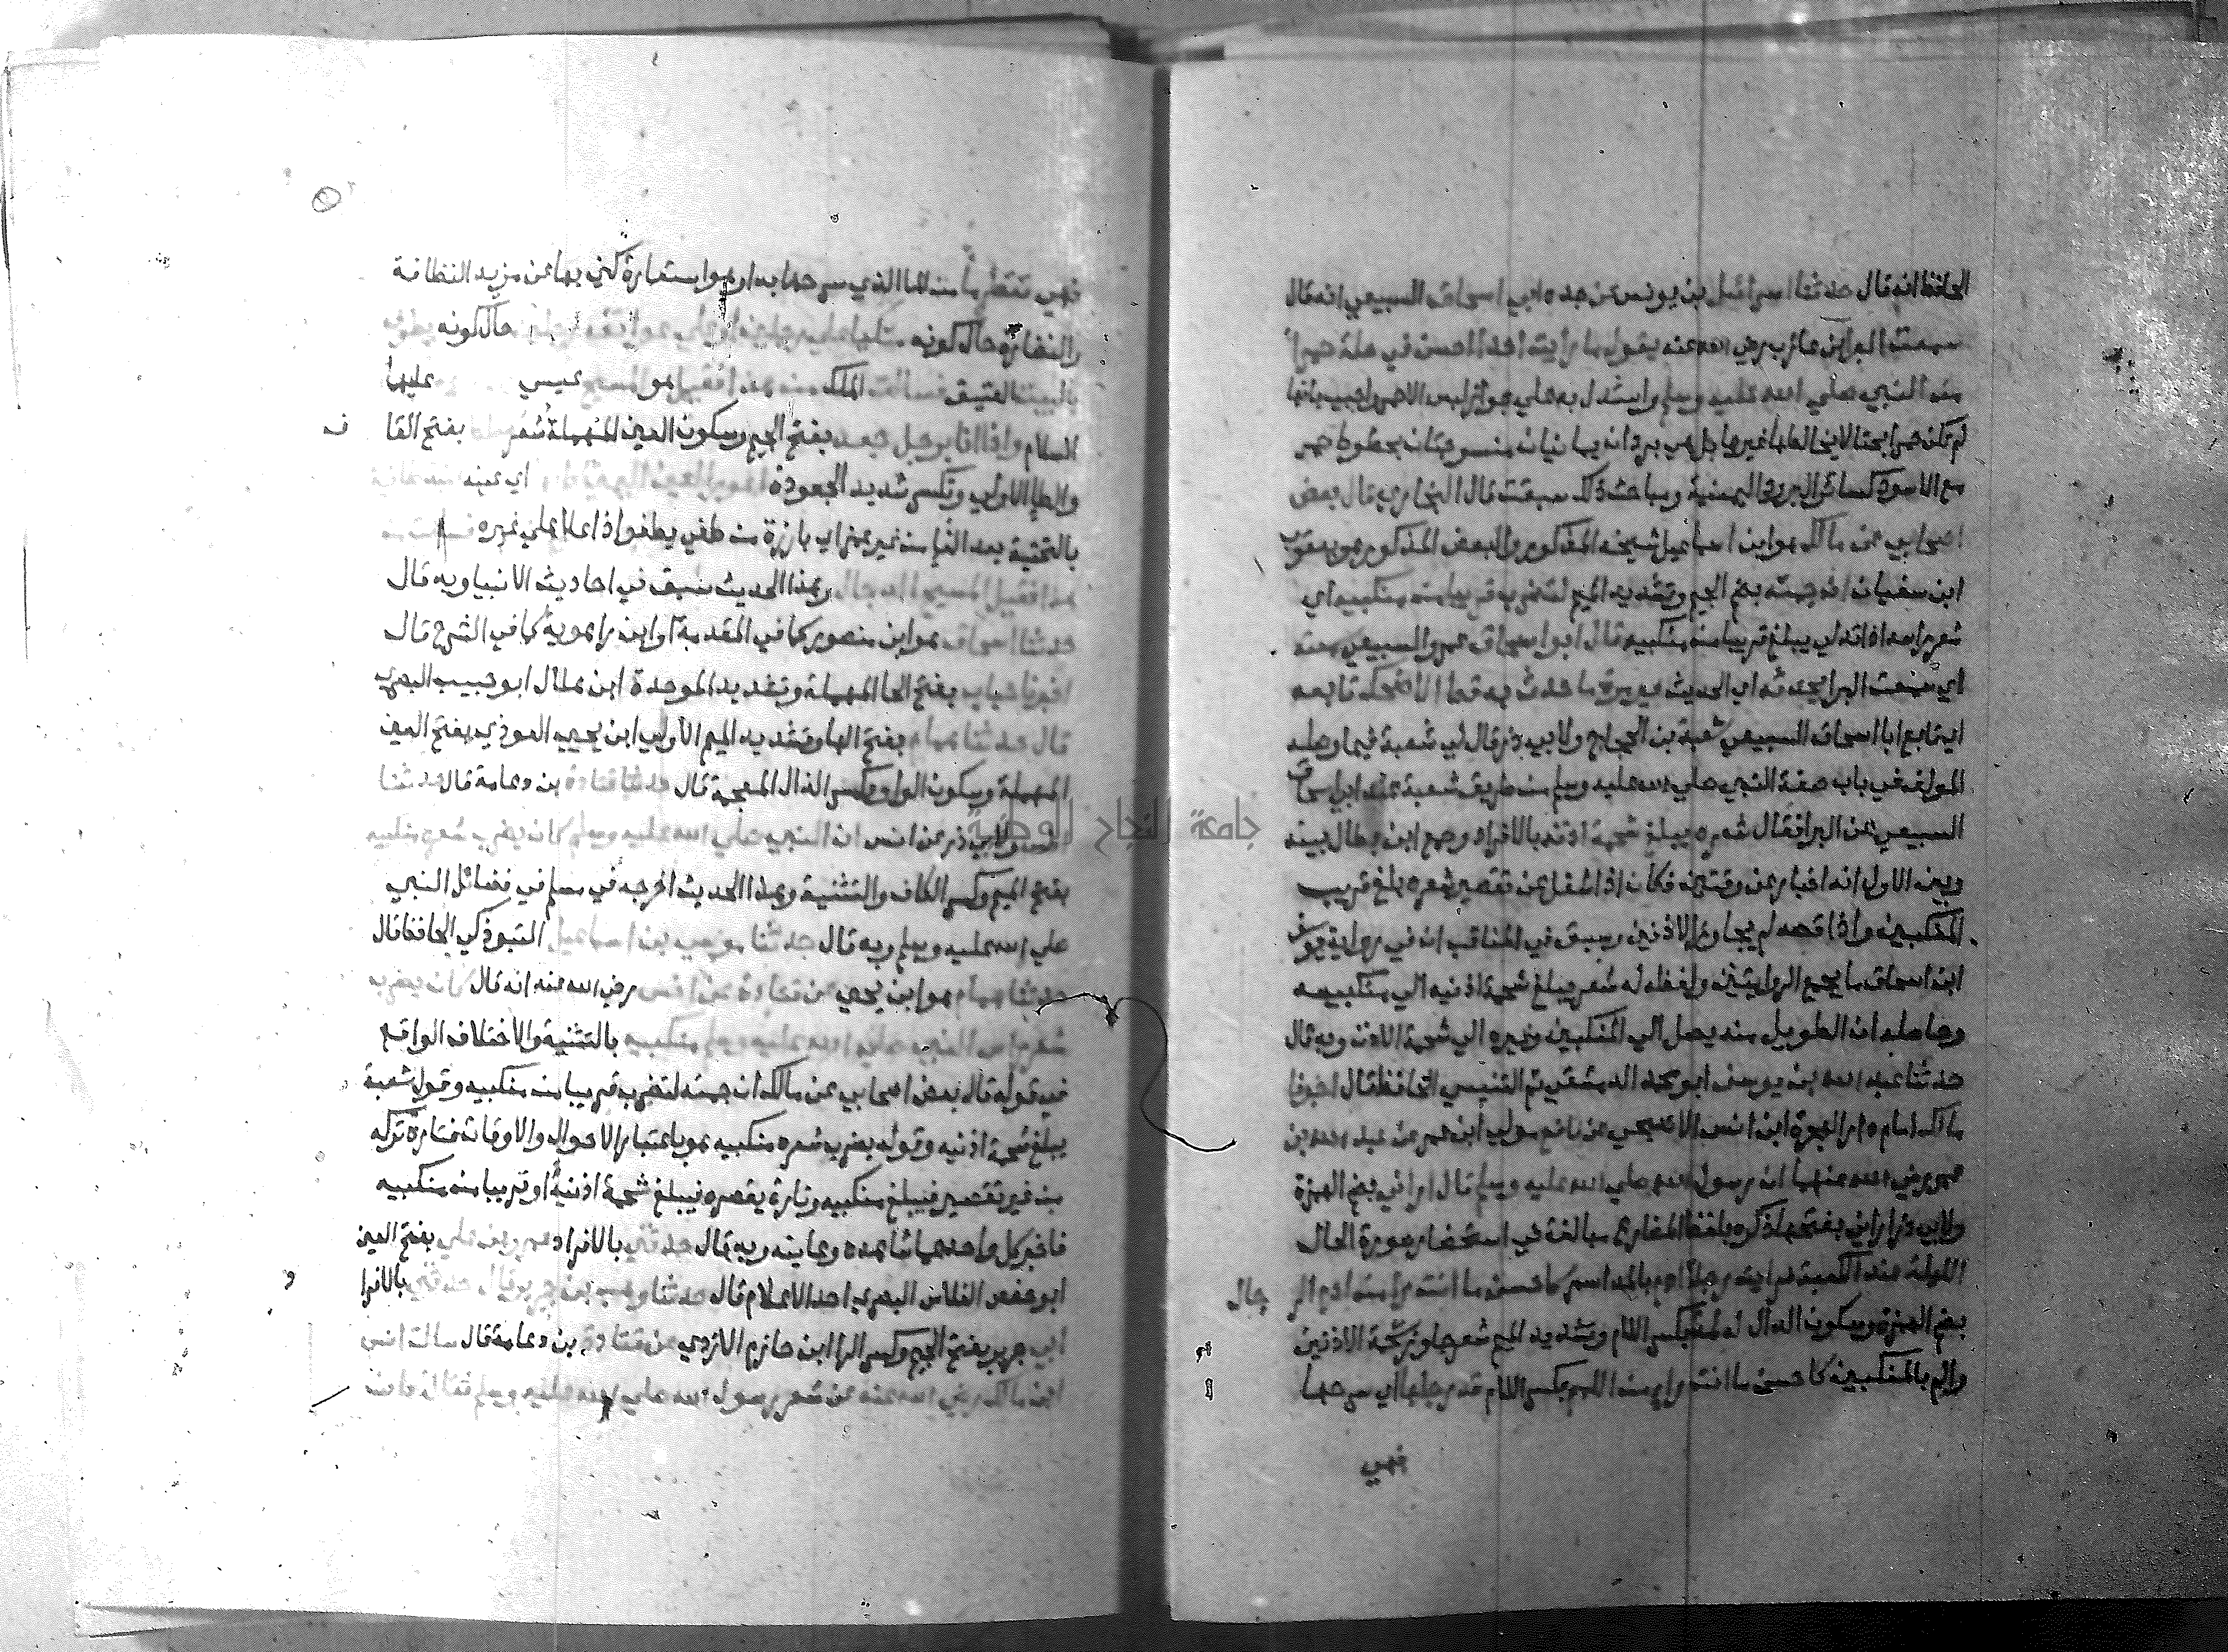 الحافظ انه قال حدثنا اسرائيل بن يونس عن جده ابي اسحاق السبيعي انه قال
سمعت البرا بن عازب رضي الله عنه يقول ما رأيت احدا احسن في حلة حمرا
من النبي صلي الله عليه وسلم واستدل به علي جواز لبس الاحمر واجيب بانها
لم تكن حمرا بحتا لا يخالطها غيرها بل هي بردان يمانيان منسوجتان بخطوط حمر
مع الاسود كسائر البرود اليمنية ومباحث ذلك سبقت قال البخاري قال بعض
اصحابي عن مالك هو ابن اسماعيل شيخه المذكور والبعض المذكور هو يعقوب
ابن سفيان ان جمته بضم الجيم وتشديد الميم لتضرب قريبا من منكبيه اي
شعر راسه اذا تدلي يبلغ قريبا من منكبيه قال ابو اسحاق عمرو السبيعي سمعته
اي سمعت البرا يحدثه اي الحديث غير مرة ما حدث به قط الا ضحك تابعه
اي تابع ابا اسحاق السبيعي شعبة بن الحجاج ولابي ذر قال لي شعبة فيما وصله
المولف في باب صفة النبي صلي الله عليه وسلم من طريق شعبة عن ابي اسحاق
السبيعي عن البرا فقال شعره يبلغ شحمة اذنه بالافراد وجمع ابن بطال بينه
وبين الاول انه اخبار عن وقتين فكان اذا شغل عن تقصير شعره بلغ قريب
المنكبين واذا قصه لم يجاوز الاذنين وسبق في المناقب ان في رواية يوسف
ابن اسحاق ما يجمع الروايتين ولفظه له شعر يبلغ شحمة اذنيه الي منكبيه
وحاصله ان الطويل منه يصل الي المنكبين وغيره الي شحمة الاذن وبه قال
حدثنا عبد الله بن يوسف ابو محمد الدمشقي ثم التنيسي الحافظ قال اخبرنا
مالك امام دار الهجرة ابن انس الاصبحي عن نافع مولي ابن عمر عن عبد الله بن
عمر رضي الله عنهما ان رسول الله صلي الله عليه وسلم قال اراني بضم الهمزة
ولابي ذر اراني بفتحها ذكره بلفظ المضارع مبالغة في استحضار صورة الحال
الليلة عند الكعبة فرايت رجلا ادم بالمد اسمر كاحسن ما انت راء من ادم الرجال
بضم الهمزة وسكون الدال له لمة بكسر اللام وتشديد الميم شعر جاوز شحمة الاذنين
والم بالمنكبين كاحسن ما انت راء من اللمم بكسر اللام قد رجلها اي سرحها
فهي
فهي تقطر ما من الما الذي سرحها به او هو استعارة كني بها عن مزيد النظافة
والنضارة حال كونه متكيا علي رجلين او علي عواتق رجلين حال كونه يطوف
بالبيت العتيق فسالت الملك من هذا فقيل هو المسيح عيسي عليهما
السلام واذا انا برجل جعد بفتح الجيم وسكون العين المهملة شعره بفتح القاف
والطا الاولي وتكسر شديد الجعودة اعور العين اليمني اي عينه
بالتحتية بعد الفا من غير همز اي بارزة من طفي يطفوا اذا علا علي غيره فسالت من
هذا فقيل المسيح الدجال وهذا الحديث سبق في احاديث الانبيا وبه قال
حدثنا اسحاق هو ابن منصور كما في المقدمة او ابن راهويه كما في الشرح قال
اخبرنا حبان بفتح الحا المهملة وتشديد الموحدة ابن هلال ابو حبيب البصري
قال حدثنا همام بفتح الها وتشديد الميم الاولي ابن يحيي العوذي بفتح العين
المهملة وسكون الواو وكسر الذال المعجمة قال حدثنا قتادة بن دعامة قال حدثنا
انس ولابي ذر عن انس ان النبي صلي الله عليه وسلم كان يضرب شعره منكبيه
بفتح الميم وكسر الكاف والتثنية وهذا الحديث اخرجه في مسلم في فضائل النبي
صلي الله عليه وسلم وبه قال حدثنا موسي بن اسماعيل التبوذكي الحافظ قال
حدثنا همام هو ابن يحيي عن قتادة عن انس رضي الله عنه انه قال كان يضرب
شعر راس النبي صلي الله عليه وسلم منكبيه بالتثنية والاختلاف الواقع
في قوله قال بعض اصحابي عن مالك ان جمته لتضرب قريبا من منكبيه وقول شعبة
يبلغ شحمة اذنيه وقوله يضرب شعره منكبيه هو باعتبار الاحوال والاوقات فتارة تركه
من غير تقصير فيبلغ منكبيه وتارة يقصره فيبلغ شحمة اذنيه او قريبا من منكبيه
فاخبر كل واحد بما شاهده وعاينه وبه قال حدثني بالافراد عمرو بن علي بفتح العين
ابو حفص الفلاس البصري احد الاعلام قال حدثنا وهب بن جرير قال حدثني بالافراد
ابي جرير بفتح الجيم وكسر الرا ابن حازم الازدي عن قتادة بن دعامة قال سالت انس
ابن مالك رضي الله عنه عن شعر رسول الله صلي الله عليه وسلم فقال كان
جامعة النجاح الوطنية